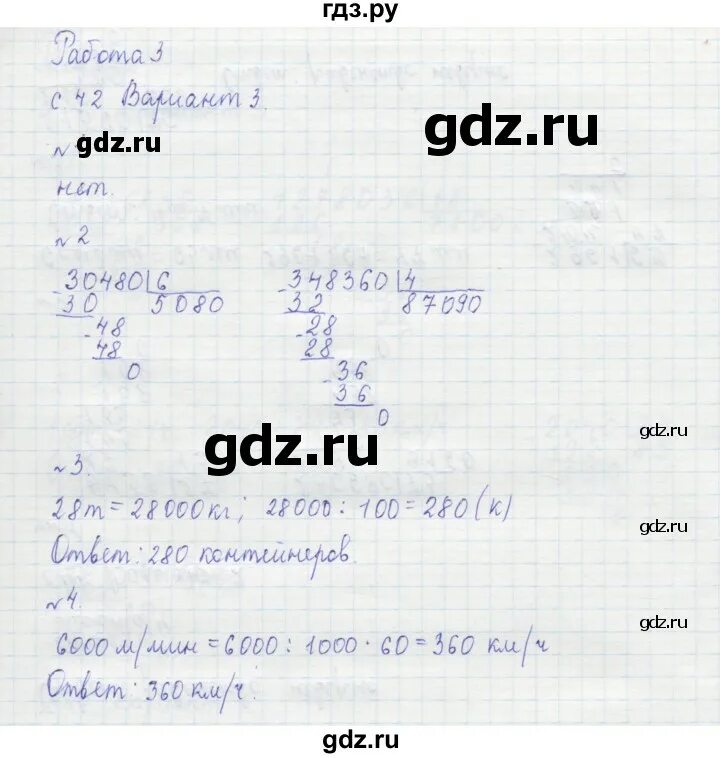 гдз.ру
Работа 3
с 42 Вариант 3.
gdz.ru
№
gdz.ru
нет.
№2
30480 6
30 5080
48
48
0
348360 4
32 87090
28
28
36
36
0
gdz.ru
gdz.ru
№3.
28т = 28000кг; 28000 : 100 = 280 (к)
gdz.ru
Ответ: 280 контейнеров.
№4.
gdz.ru
6000 м/мин = 6000 : 1000 · 60 = 360 км/ч
Ответ: 360 км/ч.
gdz.ru